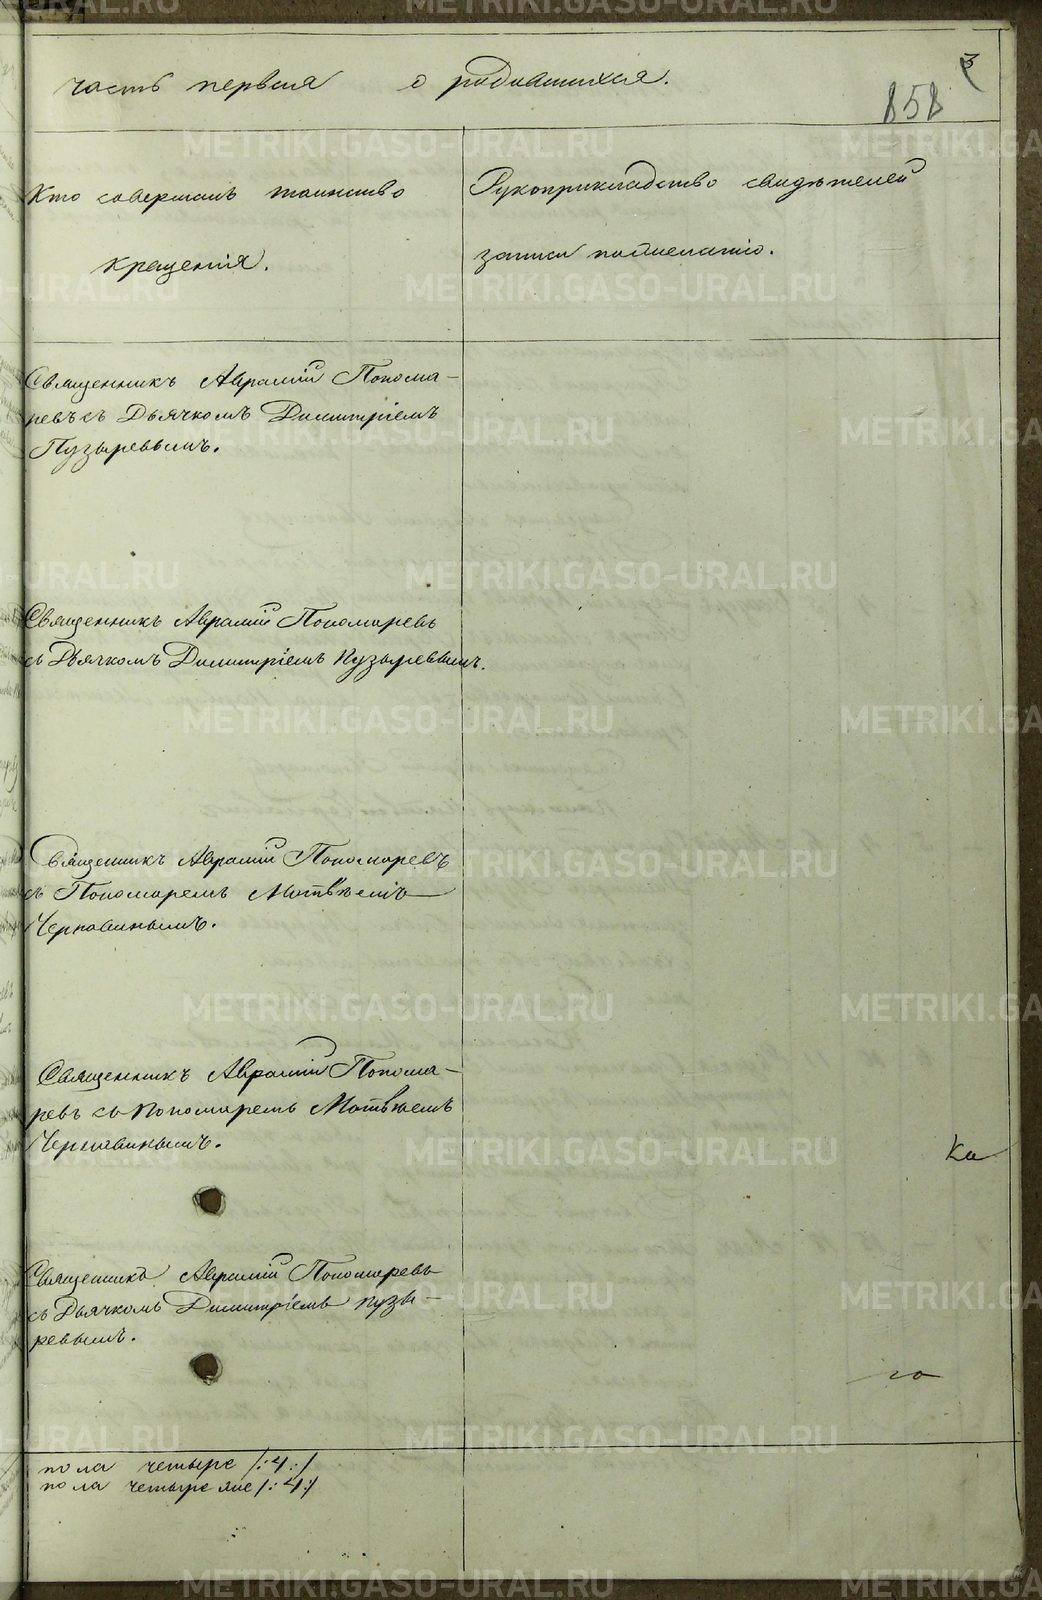 3
часть первая о родившихся.
858
Кто совершалъ таинство
крещенія.
Рукоприкладство свидѣтелей
записи по желанію.
Священникъ Аврамій Понома-
ревъ съ Дьячкомъ Димитріемъ
Пузыревымъ.
Священникъ Аврамій Пономаревъ
съ Дьячкомъ Димитріемъ Пузыревымъ.
Священникъ Аврамій Пономаревъ
съ Пономаремъ Матвѣемъ
Чернавинымъ.
Священникъ Аврамій Понома-
ревъ съ Пономаремъ Матвѣемъ
Чернавинымъ.
Ка
Священникъ Аврамій Пономаревъ
съ Дьячкомъ Димитріемъ Пузы-
ревымъ.
го
пола четыре /:4:/
пола четыре же /:4:/
METRIKI.GASO-URAL.RU